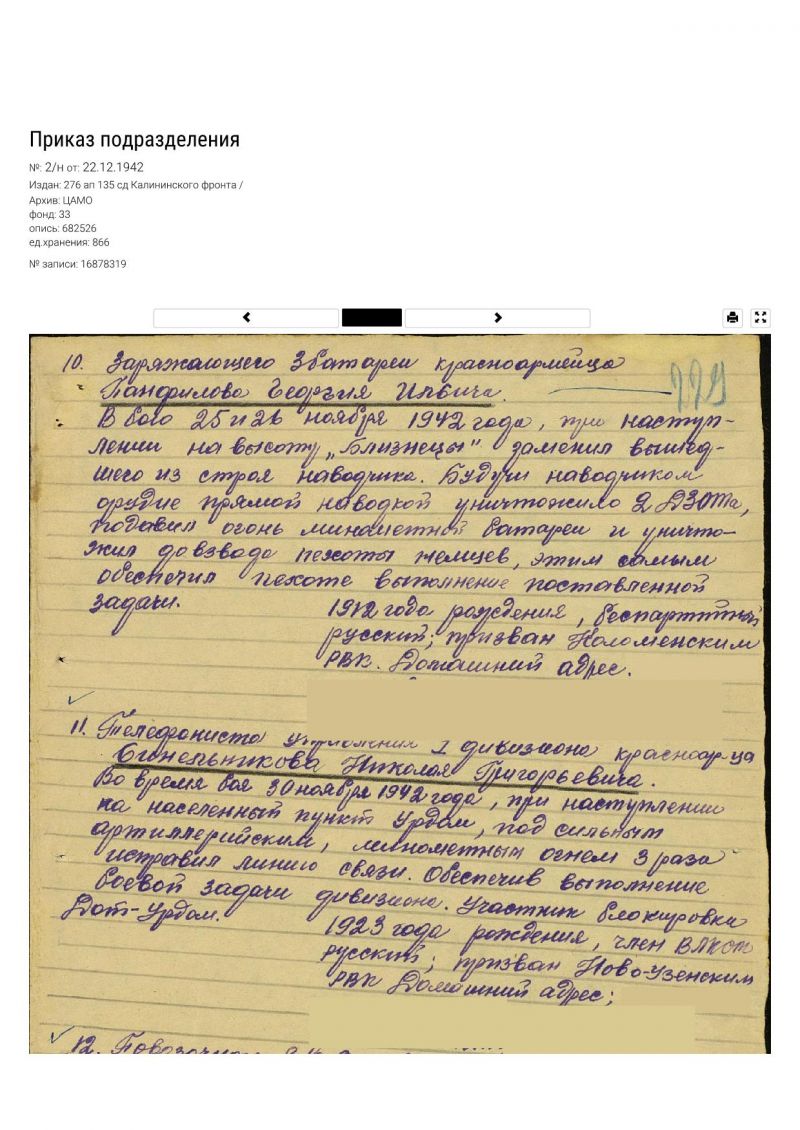 Приказ подразделения
№: 2/н от: 22.12.1942
Издан: 276 ап 135 сд Калининского фронта /
Архив: ЦАМО
фонд: 33
опись: 682526
ед.хранения: 866
№ записи: 16878319
10. Заряжающего 3 батареи красноармейца
Панфилова Георгия Ильича.
В бою 25 и 26 ноября 1942 года, при наступ-
лении на высоту „Близнецы" заменил вышед-
шего из строя наводчика. Будучи наводчиком
орудие прямой наводкой уничтожило 2 ДЗОТа,
подавил огонь минометной батареи и уничто-
жил до взвода пехоты немцев, этим самым
обеспечил пехоте выполнение поставленной
задачи.
1912 года рождения, беспартийный
русский; призван Коломенским
РВК. Домашний адрес.
11. Телефониста управления 1 дивизиона красноар-ца
Синельникова Николая Григорьевича.
Во время боя 30 ноября 1942 года, при наступлении
на населенный пункт Урдом, под сильным
артиллерийским, минометным огнем 3 раза
исправил линию связи. Обеспечив выполнение
боевой задачи дивизиона. Участник блокировки
Дот-Урдом.
1923 года рождения, член ВЛКСМ
русский; призван Ново-Узенским
РВК Домашний адрес;
12. Повозочного